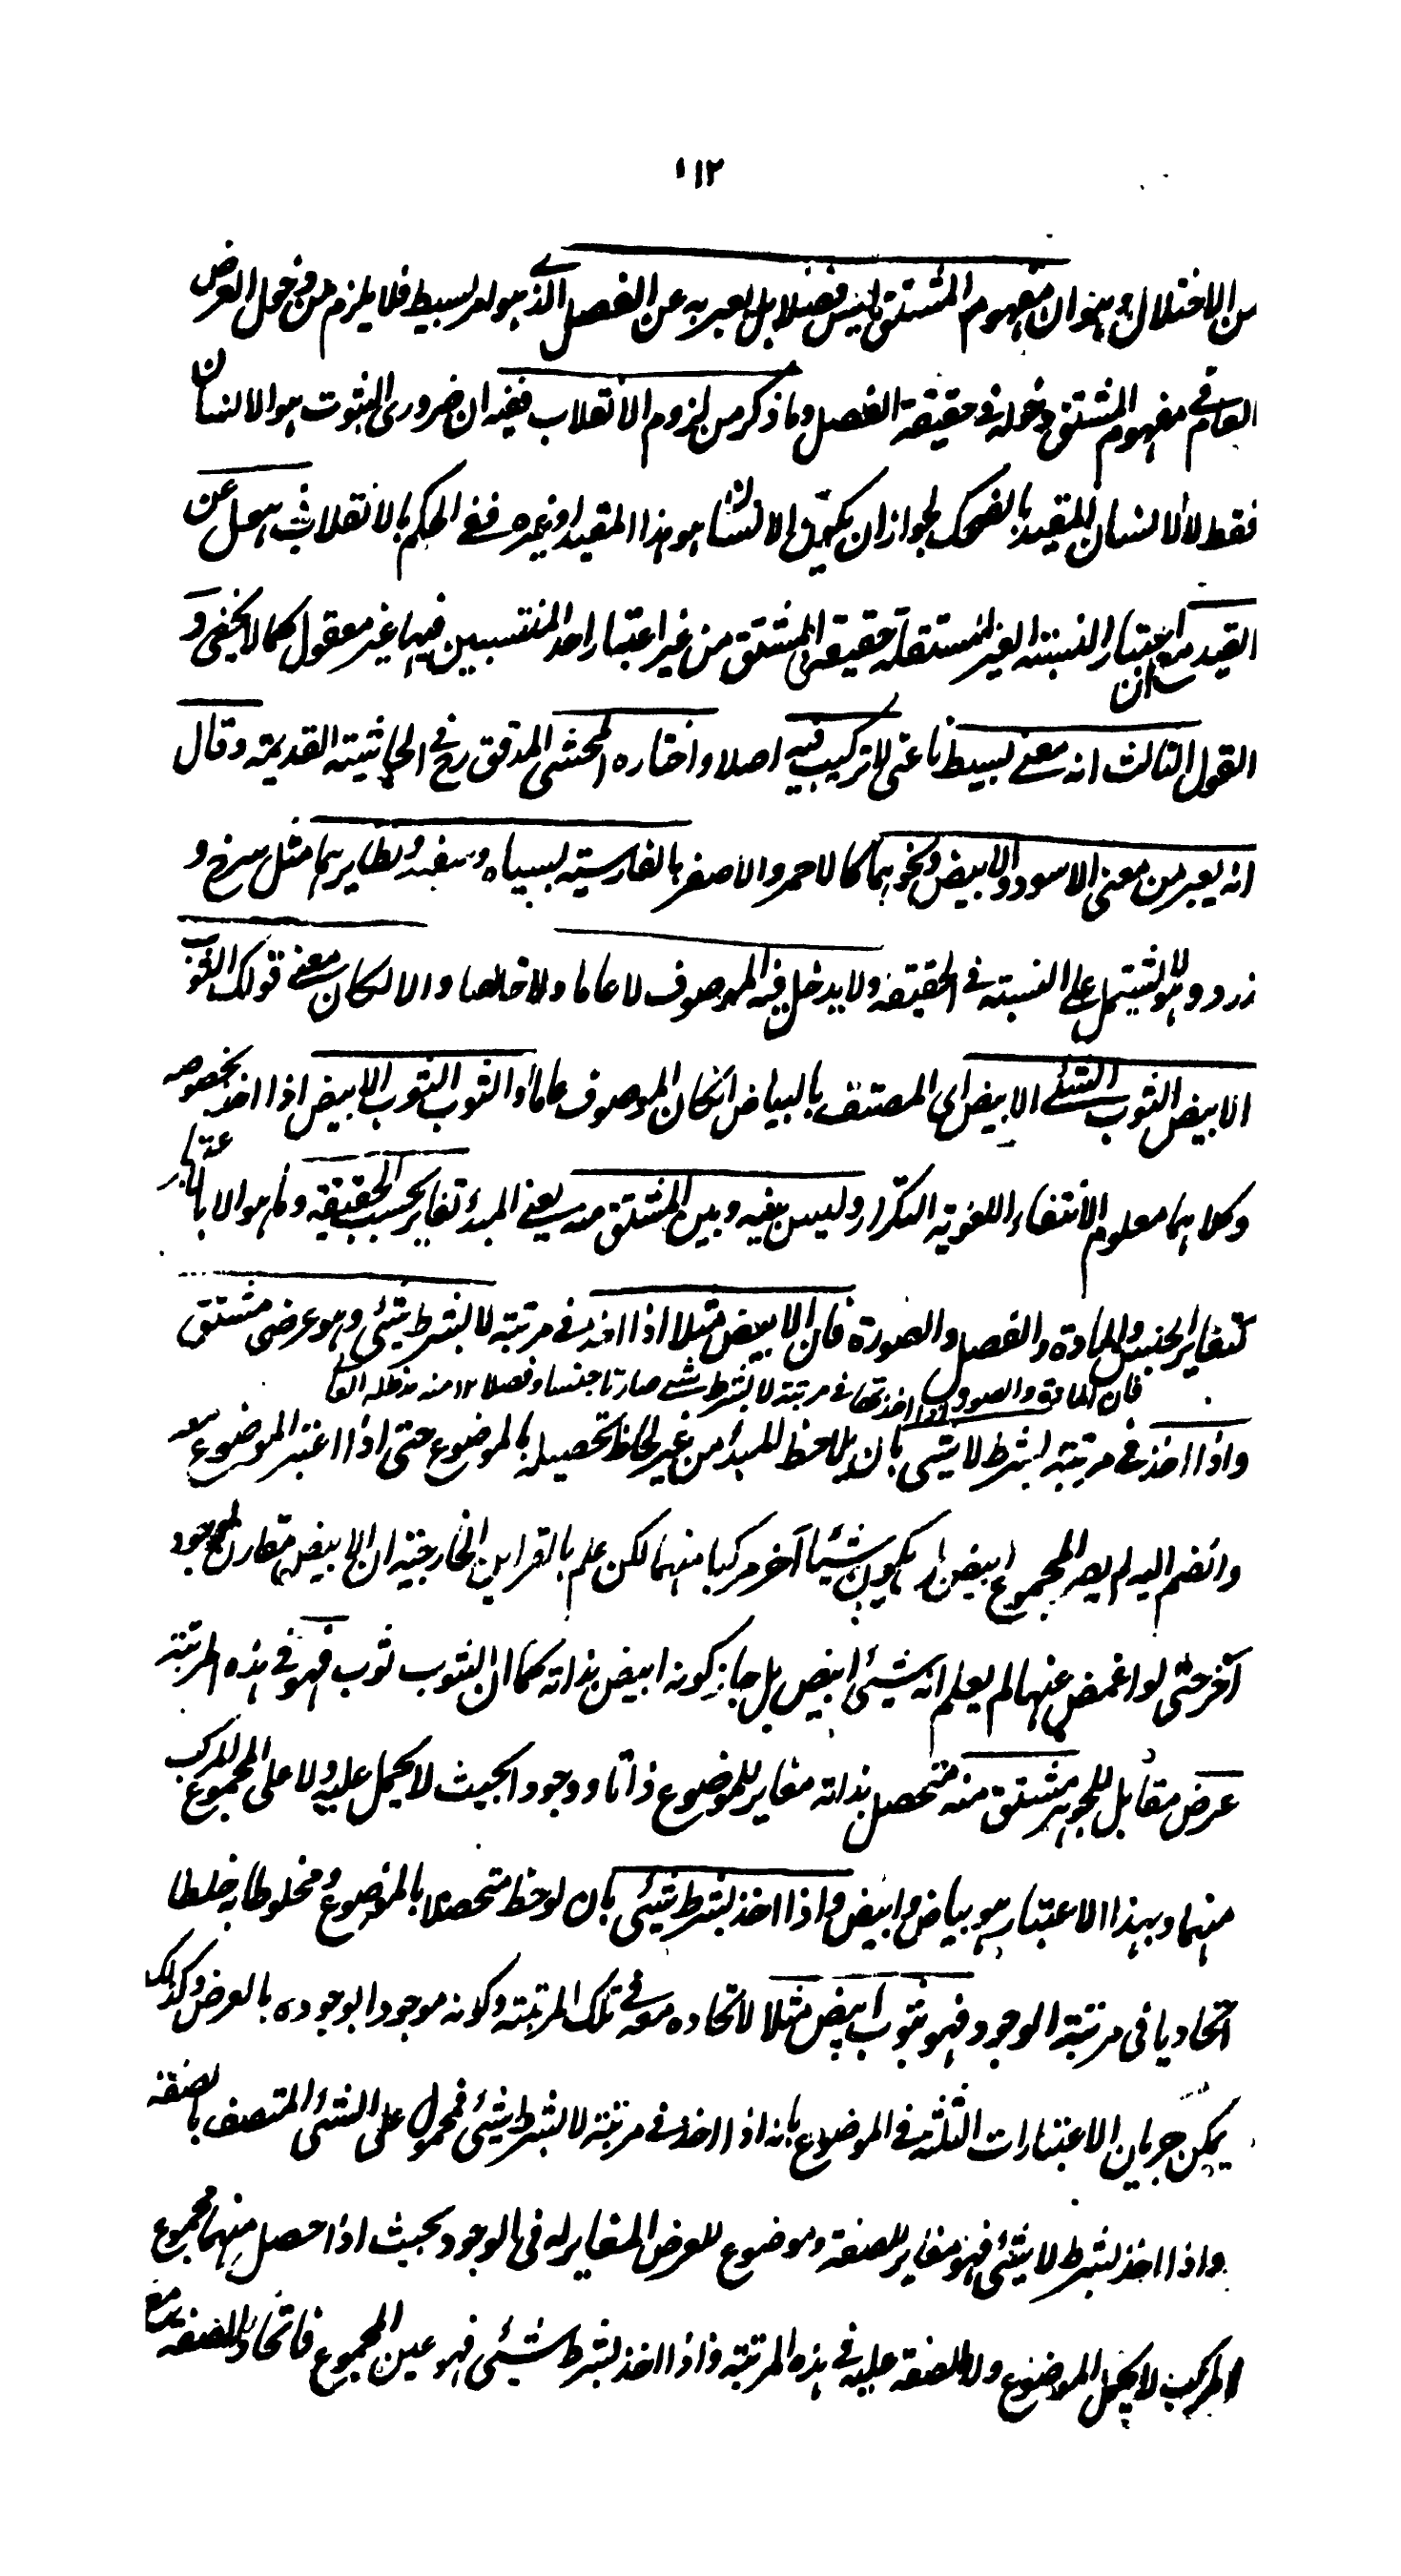 ١١٢
من الاختلال وهو ان مفهوم المشتق ليس فصلا بل يعبر به عن الفصل الذي هو امر بسيط فلا يلزم من دخول العرض
العام في مفهوم المشتق دخوله في حقيقة الفصل وما ذكر من لزوم الانقلاب ففيه ان ضروري الثبوت هو الانسان
فقط لا الانسان المقيد بالضحك لجواز ان يكون الانسان هو هذا المقيد او غيره ففي الحكم بالانقلاب ذهل عن
القيد مع ان اعتبار النسبة الغير المستقلة حقيقة في المشتق من غير اعتبار احد المنتسبين فيها غير معقول كما لا يخفى و
القول الثالث انه معنى بسيط ناعتى لا تركيب فيه اصلا واختاره المحشى المدقق رح في الحاشية القديمة وقال
انه يعبر من معنى الاسود والابيض ونحوهما كالاحمر والاصفر بالفارسية بسياه وسفيد ونظايرهما مثل سرخ و
زرد و هو لا يشتمل على النسبة في الحقيقة ولا يدخل فيه الموصوف لا عاما ولا خاصا والا لكان معنى قولك الثوب
الابيض الثوب الشئ الابيض اى المتصف بالبياض ان كان الموصوف عاما او الثوب الثوب الابيض اذا اخذ بخصوصه
وكلاهما معلوم الانتفاء للغوية التكرار وليس بينه وبين المشتق منه يعني المبدأ تغاير بحسب الحقيقة وما هو الا بالاعتبار
كتغاير الجنس والمادة والفصل والصورة فان الابيض مثلا اذا اخذ في مرتبة لا بشرط شئ وهو عرضى مشتق
فان المادة والصورة اذا اخذتها في مرتبة لا بشرط شئ صارتا جنسا وفصلا ١٢ منه مدظله العالى
واذا اخذ في مرتبة بشرط لا شئ بان يلاحظ المبدأ من غير لحاظ تحصيله بالموضوع حتى اذا اعتبر الموضوع معه
وانضم اليه لم يصر المجموع ابيض بل يكون شيئا آخر مركبا منهما لكن علم بالقراين الخارجية ان الابيض مقارن لموجود
آخر حتى لو اغمض عنها لم يعلم انه شئ ابيض بل جاز كونه ابيض بذاته كما ان الثوب ثوب فهو في هذه المرتبة
عرض مقابل للجوهر مشتق منه متحصل بذاته مغاير للموضوع ذاتا ووجودا بحيث لا يحمل عليه ولا على المجموع المركب
منهما وبهذا الاعتبار هو بياض وابيض واذا اخذ بشرط شئ بان لوحظ متحصلا بالموضوع ومخلوطا به خلطا
اتحاديا في مرتبة الوجود فهو ثوب ابيض مثلا لاتحاده معه في تلك المرتبة وكونه موجودا بوجوده بالعرض وكذلك
يمكن جريان الاعتبارات الثلثة في الموضوع بانه اذا اخذ في مرتبة لا بشرط شئ فمحمول على الشئ المتصف بالصفة
واذا اخذ بشرط لا شئ فهو مغاير للصفة وموضوع للعرض المغاير له في الوجود بحيث اذا حصل منهما مجموع
المركب لا يحمل الموضوع ولا الصفة عليه في هذه المرتبة واذا اخذ بشرط شئ فهو عين المجموع فاتحاد الصفة مع